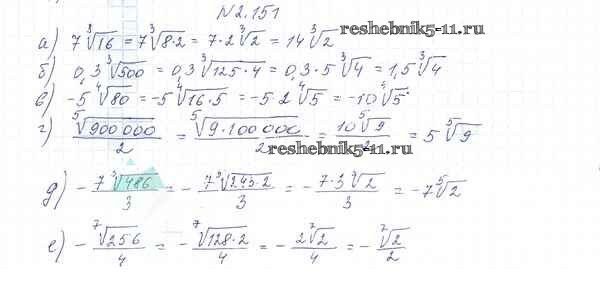 N2.151
reshebnik5-11.ru
а) 7∛16 = 7∛(8·2) = 7·2∛2 = 14∛2
б) 0,3∛500 = 0,3∛(125·4) = 0,3·5∛4 = 1,5∛4
в) -5⁴√80 = -5⁴√(16·5) = -5·2⁴√5 = -10⁴√5
г) ⁵√900 000 / 2 = ⁵√(9·100 000) / 2 = 10⁵√9 / 2 = 5⁵√9
reshebnik5-11.ru
д) - 7⁵√486 / 3 = - 7⁵√(243·2) / 3 = - 7·3⁵√2 / 3 = -7⁵√2
е) - ⁷√256 / 4 = - ⁷√(128·2) / 4 = - 2⁷√2 / 4 = - ⁷√2 / 2